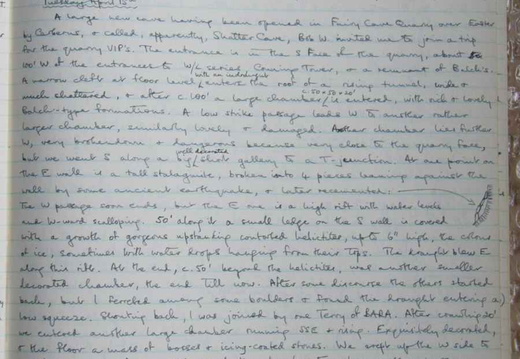 Tuesday April 1
A large new cave having been opened in Fairy Cave Quarry over Easter
by Cerberus, & called, apparently, Shatter Cave, Bob W. invited me to join a trip
for the quarry VIP's. The entrance is in the S Face of the quarry, about
100' W of the entrances to W/L series Conning Tower, & a remnant of Balch's.
A narrow cleft at floor level enters the roof of a rising tunnel, wide &
with an indraught
c. 50 x 50 x 25'
much shattered, & after c. 100' a large chamber is entered, with rich & lovely
Balch-type formations. A low strike passage leads W to another rather
larger chamber, similarly lovely & damaged. Another chamber lies further
W, very broken down & dangerous because very close to the quarry face,
well decorated
but we went S along a big/short gallery to a T-junction. At one point on
the E wall is a tall stalagmite, broken into 4 pieces leaning against the
wall by some ancient earthquake, & later recemented.
The W passage soon ends, but the E one is a high rift with water levels
and W-ward scalloping. 50' along it a small ledge on the S wall is covered
with a growth of gorgeous upstanding contorted helictites, up to 6" high, the colour
of ice, sometimes with water drops hanging from their tops. The draught blew E
along this rift. At the end, c. 50' beyond the helictites, was another smaller
decorated chamber, the end till now. After some discourse the others started
back, but I ferreted among some boulders & found the draught entering a
low squeeze. Shouting back, I was joined by one Terry of SABA. After crawling 20'
we entered another large chamber running SSE & rising. Exquisitely decorated,
& the floor a mass of bosses & icing-coated stones. We crept up the W side to